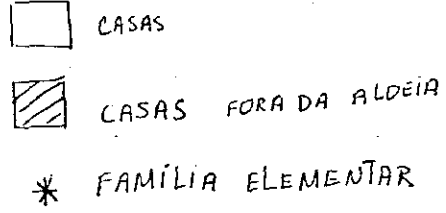 CASAS
CASAS FORA DA ALDEIA
* FAMÍLIA ELEMENTAR